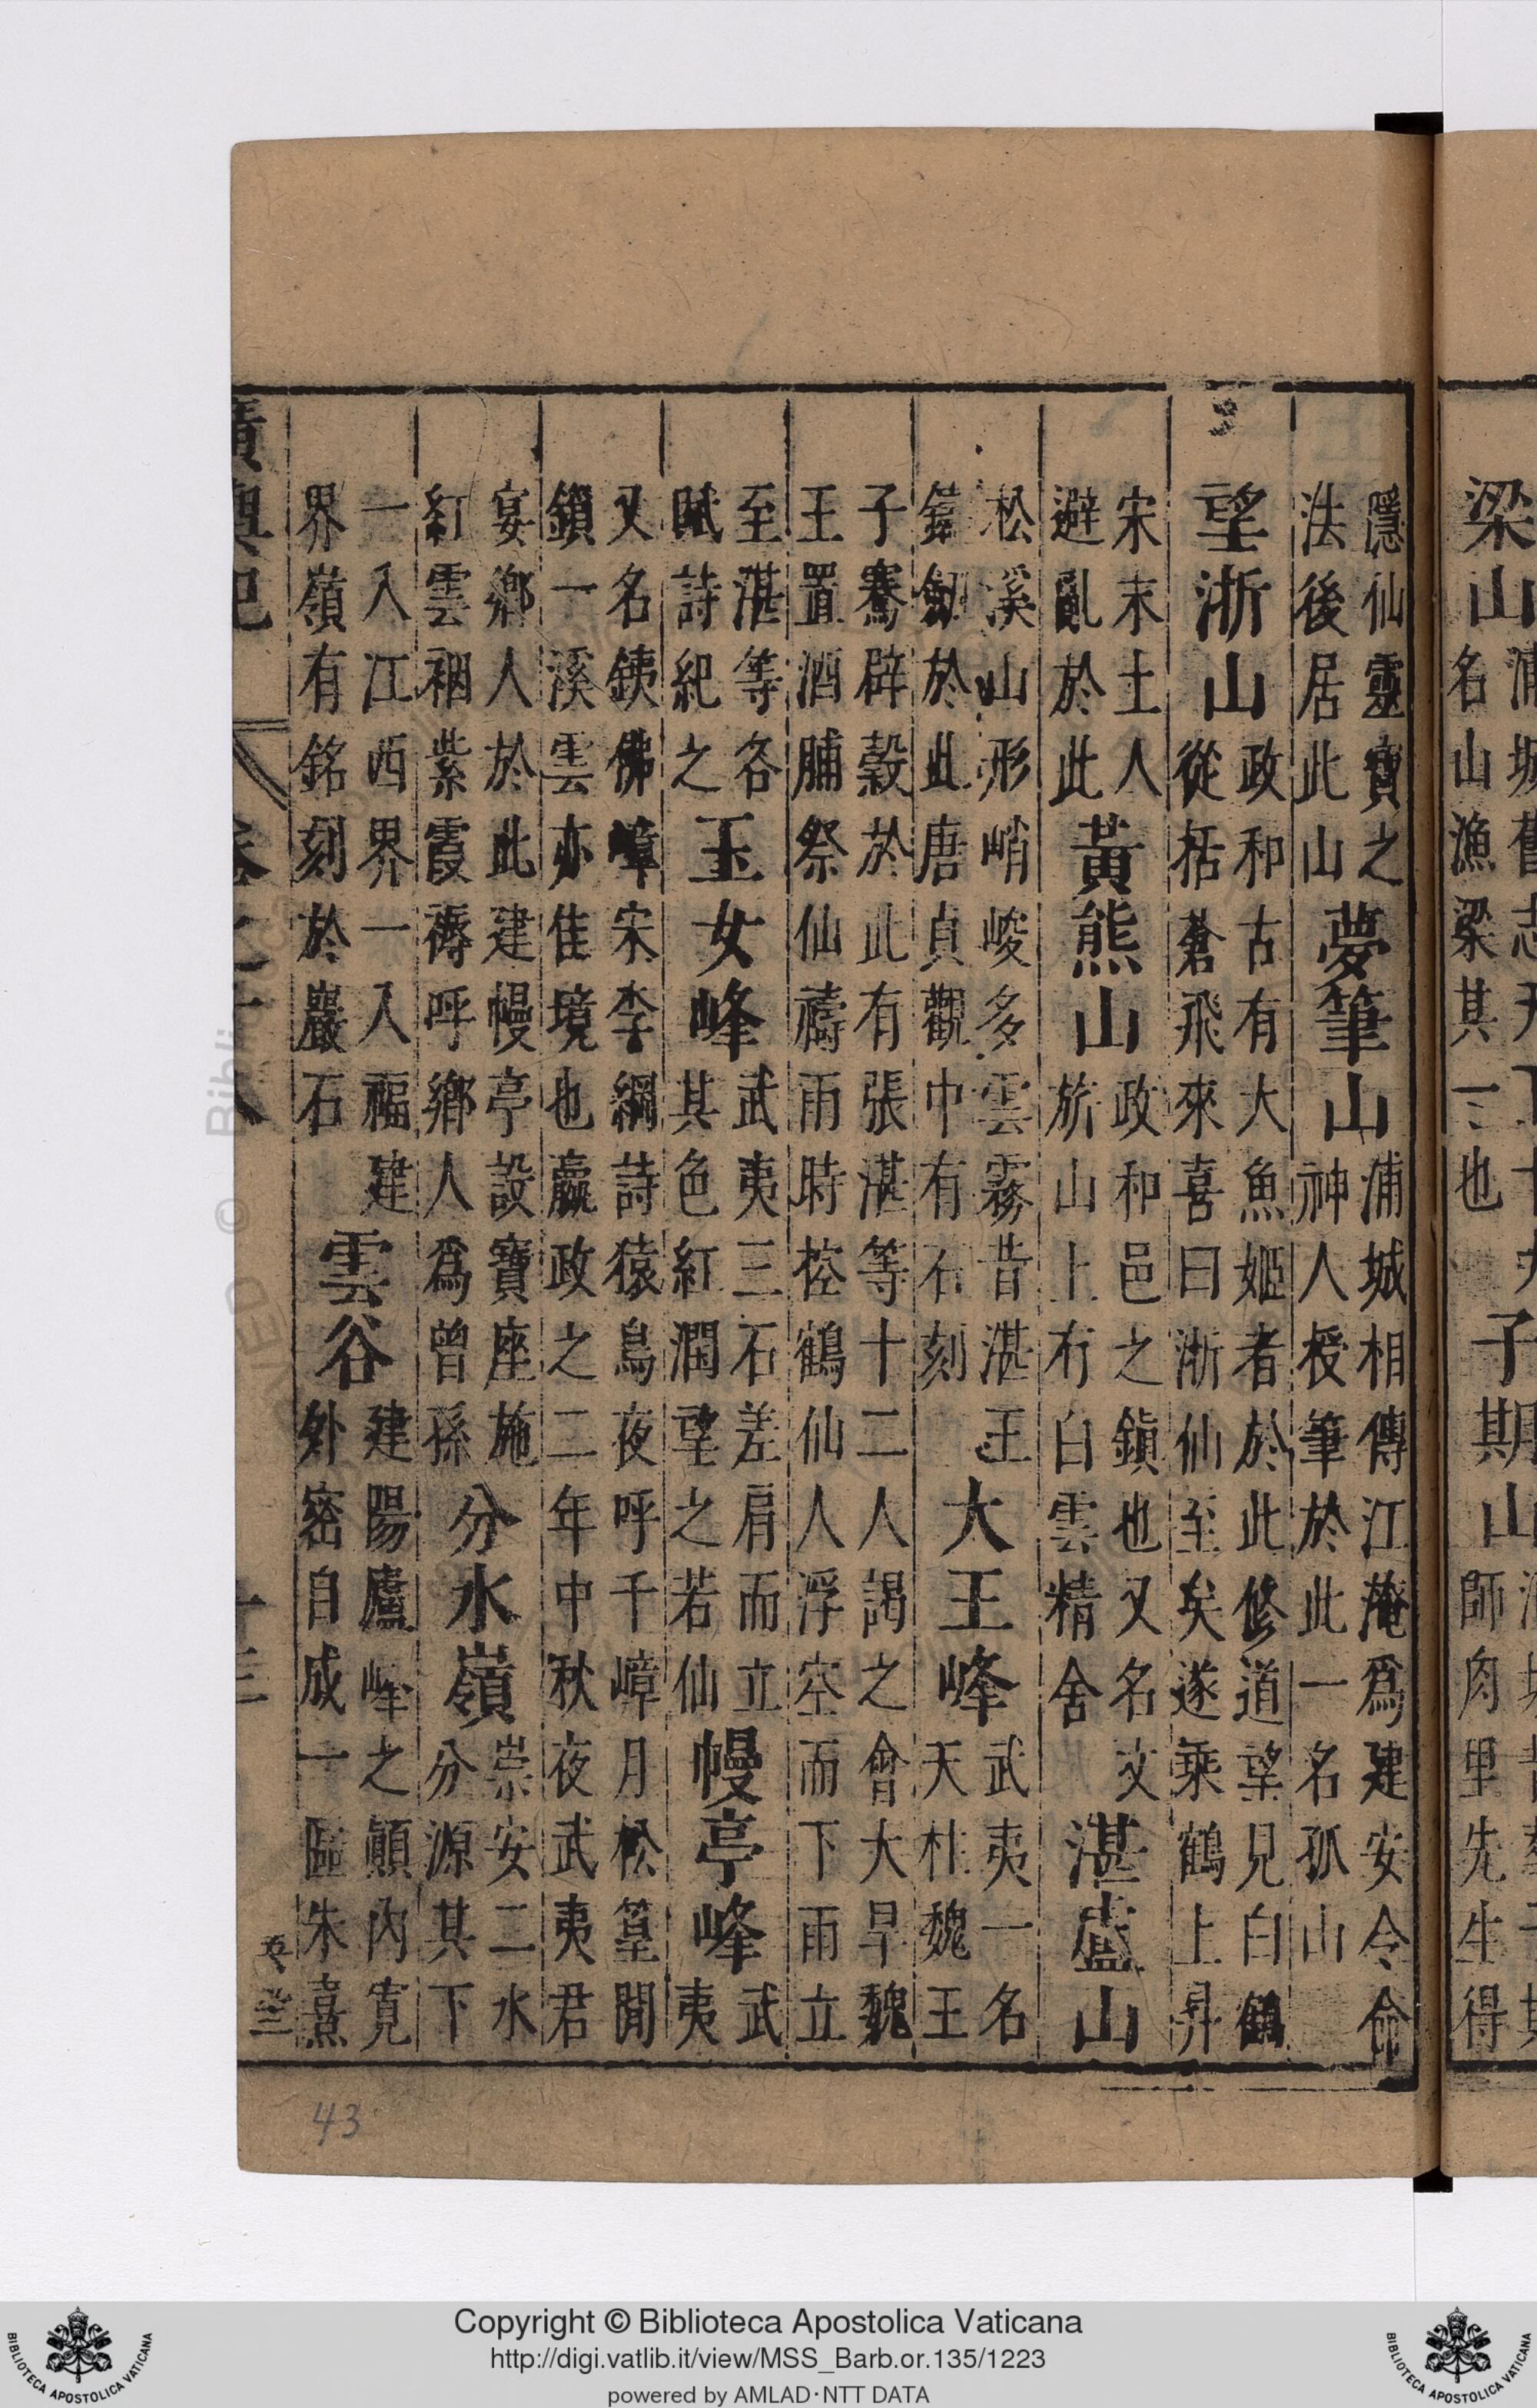 梁山
名山漁梁其一也
子期山
師肉里先生得
隱仙靈寶之
法後居此山
夢筆山
浦城相傳江淹爲建安令命
神人授筆於此一名孤山
望浙山
政和古有大魚姬者於此修道望見白鶴
從括蒼飛來喜曰浙仙至矣遂乘鶴上昇
宋末土人
避亂於此
黃熊山
政和邑之鎮也又名文
旂山上有白雲精舍
湛盧山
松溪山形峭峻多雲霧昔湛王
鑄劒於此唐貞觀中有石刻
大王峰
武夷一名
天柱魏王
子騫辟穀於此有張湛等十二人謁之會大旱魏
王置酒脯祭仙禱雨時控鶴仙人浮空而下雨立
至湛等各
賦詩紀之
玉女峰
武夷三石差肩而立
其色紅潤望之若仙
幔亭峰
武
夷
又名鐵佛嶂宋李綱詩猿鳥夜呼千嶂月松篁閒
鎖一溪雲亦佳境也嬴政之二年中秋夜武夷君
宴鄉人於此建幔亭設寶座施
紅雲裀紫霞褥呼鄉人爲曾孫
分水嶺
崇安二水
分源其下
一入江西界一入福建
界嶺有銘刻於巖石
雲谷
建陽廬峰之顛內寬
外密自成一區朱熹
廣輿記
卷之十八
十三
43
Copyright © Biblioteca Apostolica Vaticana
http://digi.vatlib.it/view/MSS_Barb.or.135/1223
powered by AMLAD·NTT DATA
BIBLIOTECA APOSTOLICA VATICANA
BIBLIOTECA APOSTOLICA VATICANA